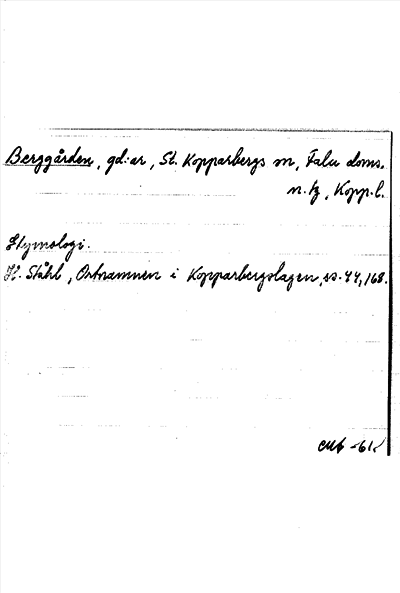 Berggården, gd:ar, St. Kopparbergs sn, Falu doms.
n. tg, Kopp. l.
Etymologi.
H. Ståhl, Ortnamnen i Kopparbergslagen, ss. 44, 168.
-61